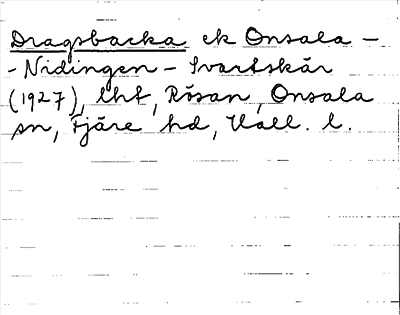 Dragsbacka ek Onsala -
- Nidingen - Svartskär
(1927), lht, Rösan, Onsala
sn, Fjäre hd, Hall. l.